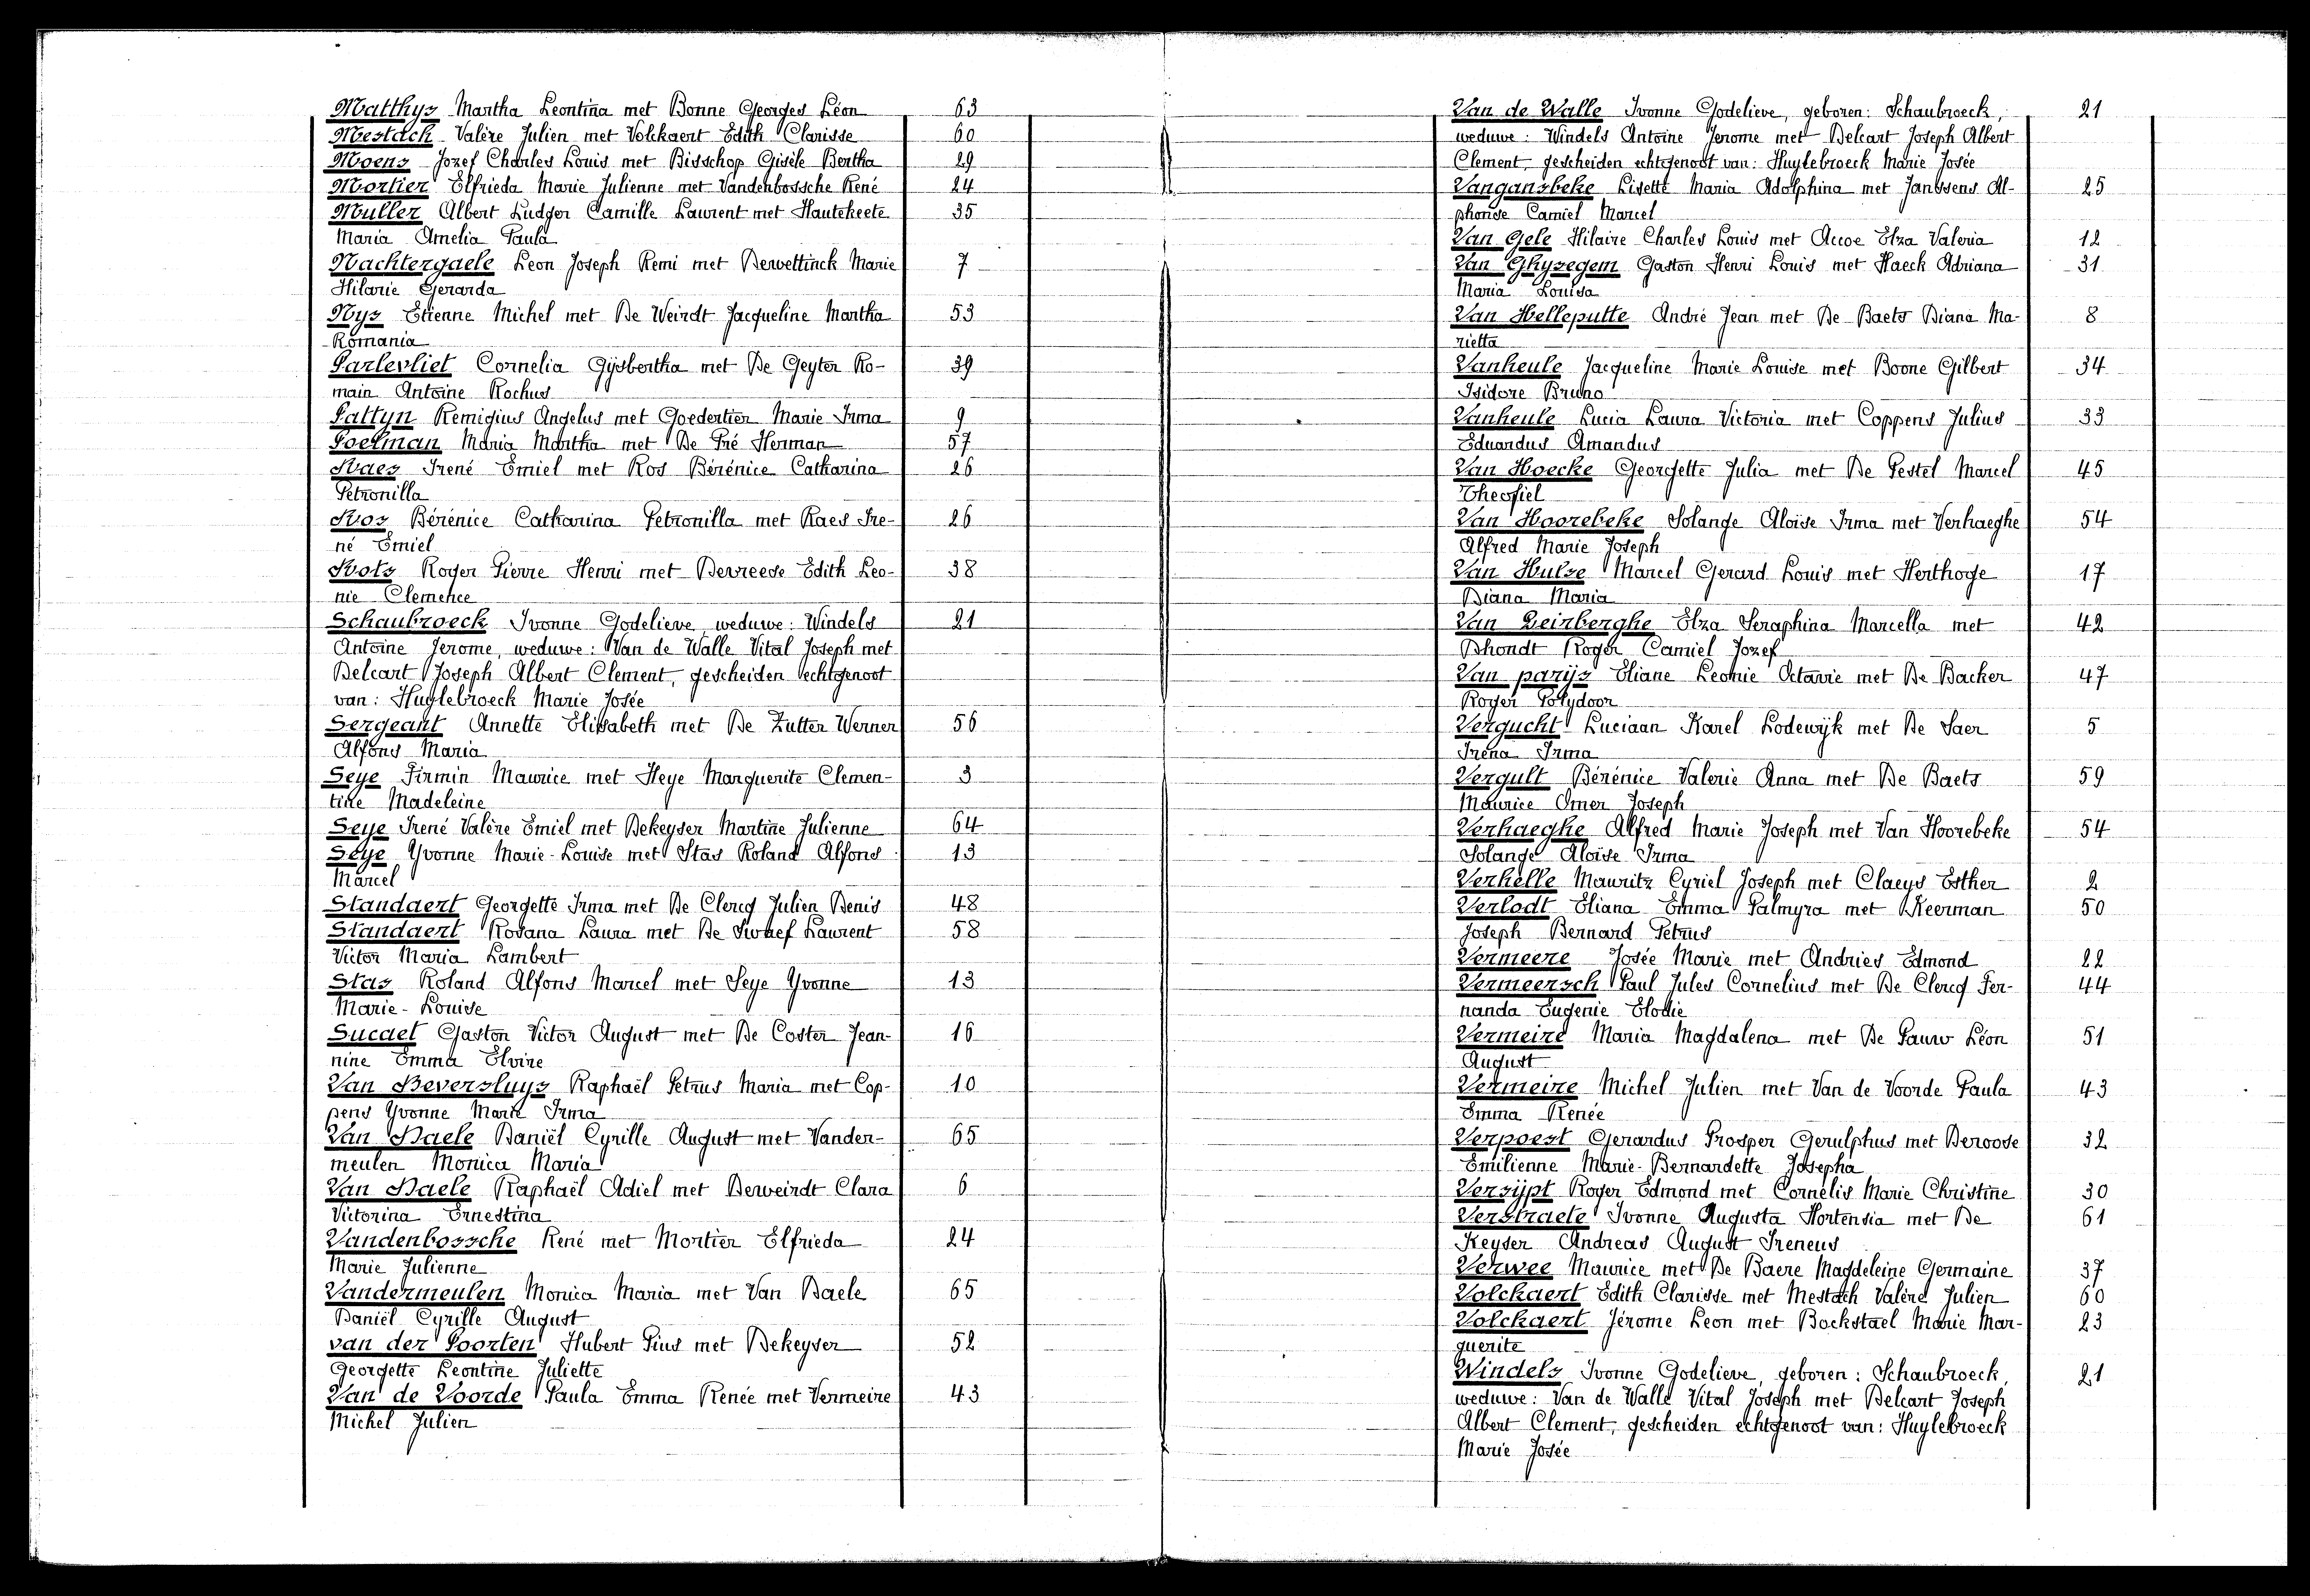 Matthys Martha Leontina met Bonne Georges Léon 63
Mestdach Valère Julien met Volckaert Edith Clarisse 60
Moens Jozef Charles Louis met Bisschop Gisèle Bertha 29
Mortier Elfrieda Marie Julienne met Vandenbossche René 24
Muller Albert Ludger Camille Laurent met Hautekeete 35
Maria Amelia Paula
Nachtergaele Leon Joseph Remi met Dewettinck Marie 7
Hilarie Gerarda
Nys Etienne Michel met De Weirdt Jacqueline Martha 53
Romania
Parlevliet Cornelia Gijsbertha met De Geyter Ro- 39
main Antoine Rochus
Pattyn Remigius Angelus met Goedertier Marie Irma 9
Poelman Maria Martha met De Pré Herman 57
Raes Irené Emiel met Ros Bérénice Catharina 26
Petronilla
Ros Bérénice Catharina Petronilla met Raes Ire- 26
né Emiel
Rots Roger Pierre Henri met Devreese Edith Leo- 38
nie Clemence
Schaubroeck Ivonne Godelieve, weduwe: Windels 21
Antoine Jerome, weduwe: Van de Walle Vital Joseph met
Delcart Joseph Albert Clement, gescheiden echtgenoot
van: Huylebroeck Marie Josée
Sergeant Annette Elisabeth met De Zutter Werner 56
Alfons Maria
Seye Firmin Maurice met Heye Marguerite Clemen- 3
tine Madeleine
Seye Irené Valère Emiel met Dekeyser Martine Julienne 64
Seye Yvonne Marie-Louise met Stas Roland Alfons 13
Marcel
Standaert Georgette Irma met De Clercq Julien Denis 48
Standaert Rosana Laura met De Swaef Laurent 58
Victor Maria Lambert
Stas Roland Alfons Marcel met Seye Yvonne 13
Marie-Louise
Sucaet Gaston Victor August met De Coster Jean- 16
nine Emma Elvire
Van Beversluys Raphaël Petrus Maria met Cop- 10
pens Yvonne Marie Irma
Van Daele Daniël Cyrille August met Vander- 65
meulen Monica Maria
Van Daele Raphaël Adiel met Derweirdt Clara 6
Victorina Ernestina
Vandenbossche René met Mortier Elfrieda 24
Marie Julienne
Vandermeulen Monica Maria met Van Daele 65
Daniël Cyrille August
van der Poorten Hubert Pius met Dekeyser 52
Georgette Leontine Juliette
Van de Voorde Paula Emma Renée met Vermeire 43
Michel Julien
Van de Walle Ivonne Godelieve, geboren: Schaubroeck, 21
weduwe: Windels Antoine Jerome met Delcart Joseph Albert
Clement, gescheiden echtgenoot van: Huylebroeck Marie Josée
Vangansbeke Lisette Maria Adolphina met Janssens Al- 25
phonse Camiel Marcel
Van Gele Hilaire Charles Louis met Accoe Elza Valeria 12
Van Ghysegem Gaston Henri Louis met Haeck Adriana 31
Maria Louisa
Van Helleputte André Jean met De Baets Diana Ma- 8
rietta
Vanheule Jacqueline Marie Louise met Boone Gilbert 34
Isidore Bruno
Vanheule Lucia Laura Victoria met Coppens Julius 33
Eduardus Amandus
Van Hoecke Georgette Julia met De Pestel Marcel 45
Theofiel
Van Hoorebeke Solange Aloïse Irma met Verhaeghe 54
Alfred Marie Joseph
Van Hulse Marcel Gerard Louis met Herthoge 17
Diana Maria
Van Leirberghe Elza Seraphina Marcella met 42
Dhondt Roger Camiel Jozef
Van parijs Eliane Leonie Octavie met De Backer 47
Roger Polydoor
Vergucht Luciaan Karel Lodewijk met De Saer 5
Irena Irma
Vergult Bérénice Valerie Anna met De Baets 59
Maurice Omer Joseph
Verhaeghe Alfred Marie Joseph met Van Hoorebeke 54
Solange Aloïse Irma
Verhelle Mauritz Cyriel Joseph met Claeys Esther 2
Verlodt Eliana Emma Palmyra met Keerman 50
Joseph Bernard Petrus
Vermeere Josée Marie met Andries Edmond 22
Vermeersch Paul Jules Cornelius met De Clercq Fer- 44
nanda Eugenie Elodie
Vermeire Maria Magdalena met De Pauw Léon 51
August
Vermeire Michel Julien met Van de Voorde Paula 43
Emma Renée
Verpoest Gerardus Prosper Gerulphus met Deroose 32
Emilienne Marie-Bernardette Josepha
Versijpt Roger Edmond met Cornelis Marie Christine 30
Verstraete Ivonne Augusta Hortensia met De 61
Keyser Andreas August Ireneus
Verwee Maurice met De Baere Magdeleine Germaine 37
Volckaert Edith Clarisse met Mestdach Valère Julien 60
Volckaert Jérome Leon met Bockstael Marie Mar- 23
guerite
Windels Ivonne Godelieve, geboren: Schaubroeck, 21
weduwe: Van de Walle Vital Joseph met Delcart Joseph
Albert Clement, gescheiden echtgenoot van: Huylebroeck
Marie Josée